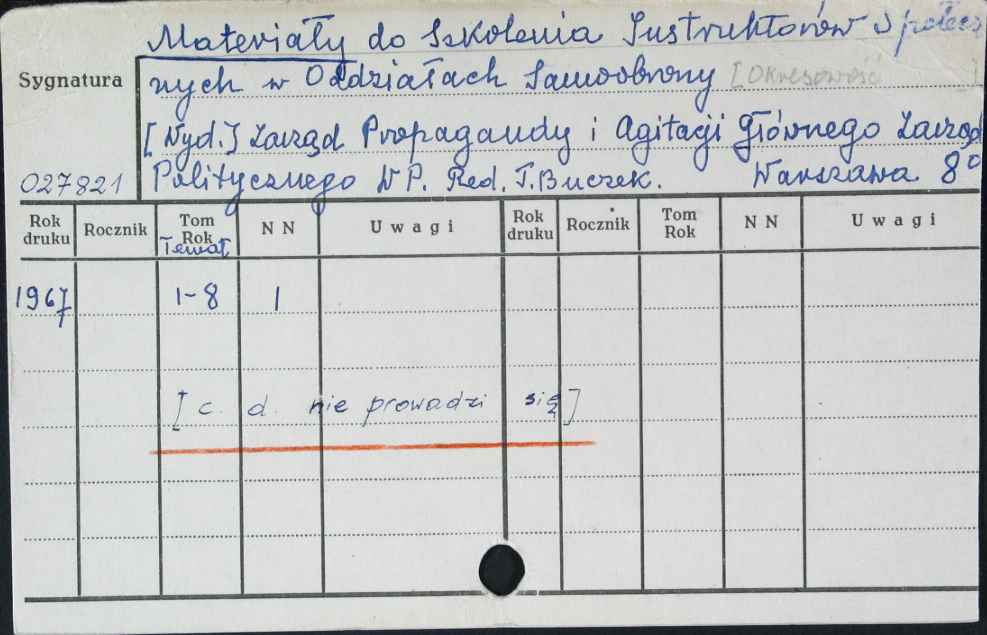 Materiały do Szkolenia Instruktorów Społecz
Sygnatura
nych w Oddziałach Samoobrony [Okresowość ]
[Wyd.] Zarząd Propagandy i Agitacji Głównego Zarząd
027821
Politycznego WP. Red. T. Buczek. Warszawa 8°
Rok druku Rocznik Tom Rok Temat NN Uwagi Rok druku Rocznik Tom Rok NN Uwagi
1967 1-8 1
[c. d. nie prowadzi się]